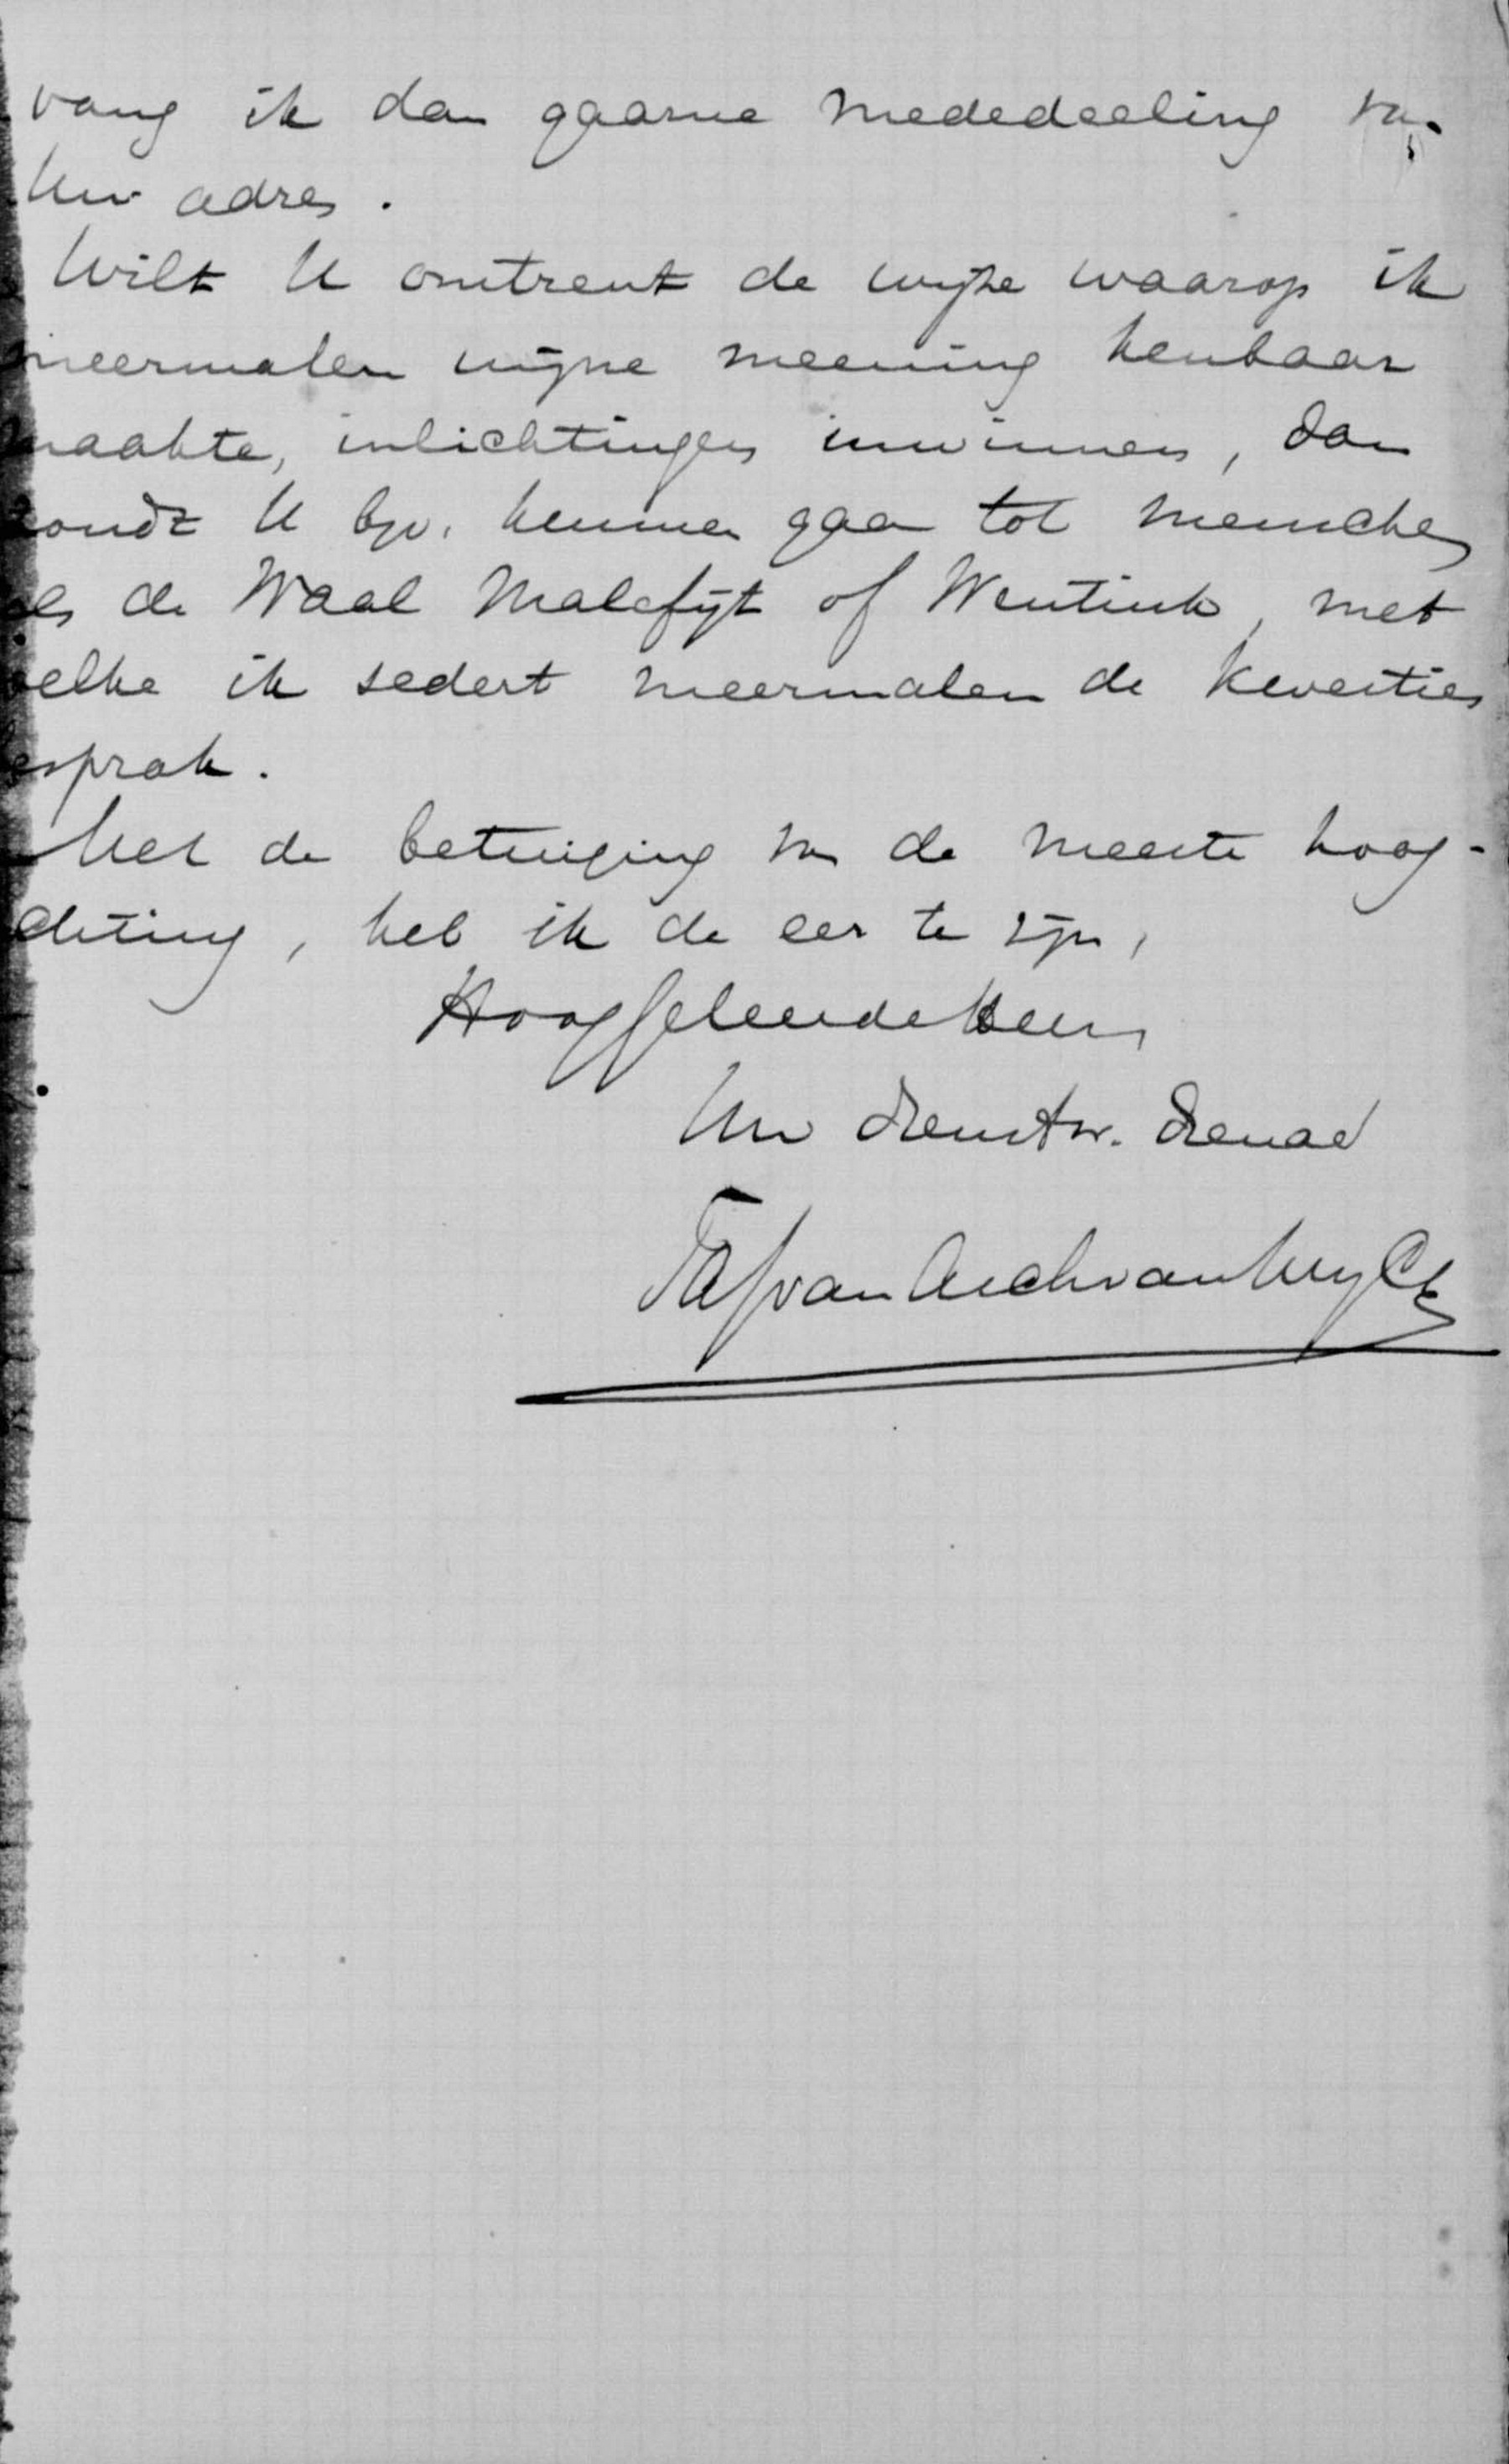 vang ik dan gaarne mededeeling van
Uw adres.
Wilt U omtrent de wijze waarop ik
meermalen mijne meening kenbaar
maakte, inlichtingen inwinnen, dan
zoudt U bijv. kunnen gaan tot menschen
als de Waal Malefijt of Wentink, met
welke ik sedert meermalen de kwesties
besprak.
Met de betuiging van de meeste hoog-
achting, heb ik de eer te zijn,
Hooggeleerde Heer,
Uw dienstw. dienaar
van Asch van Wyck